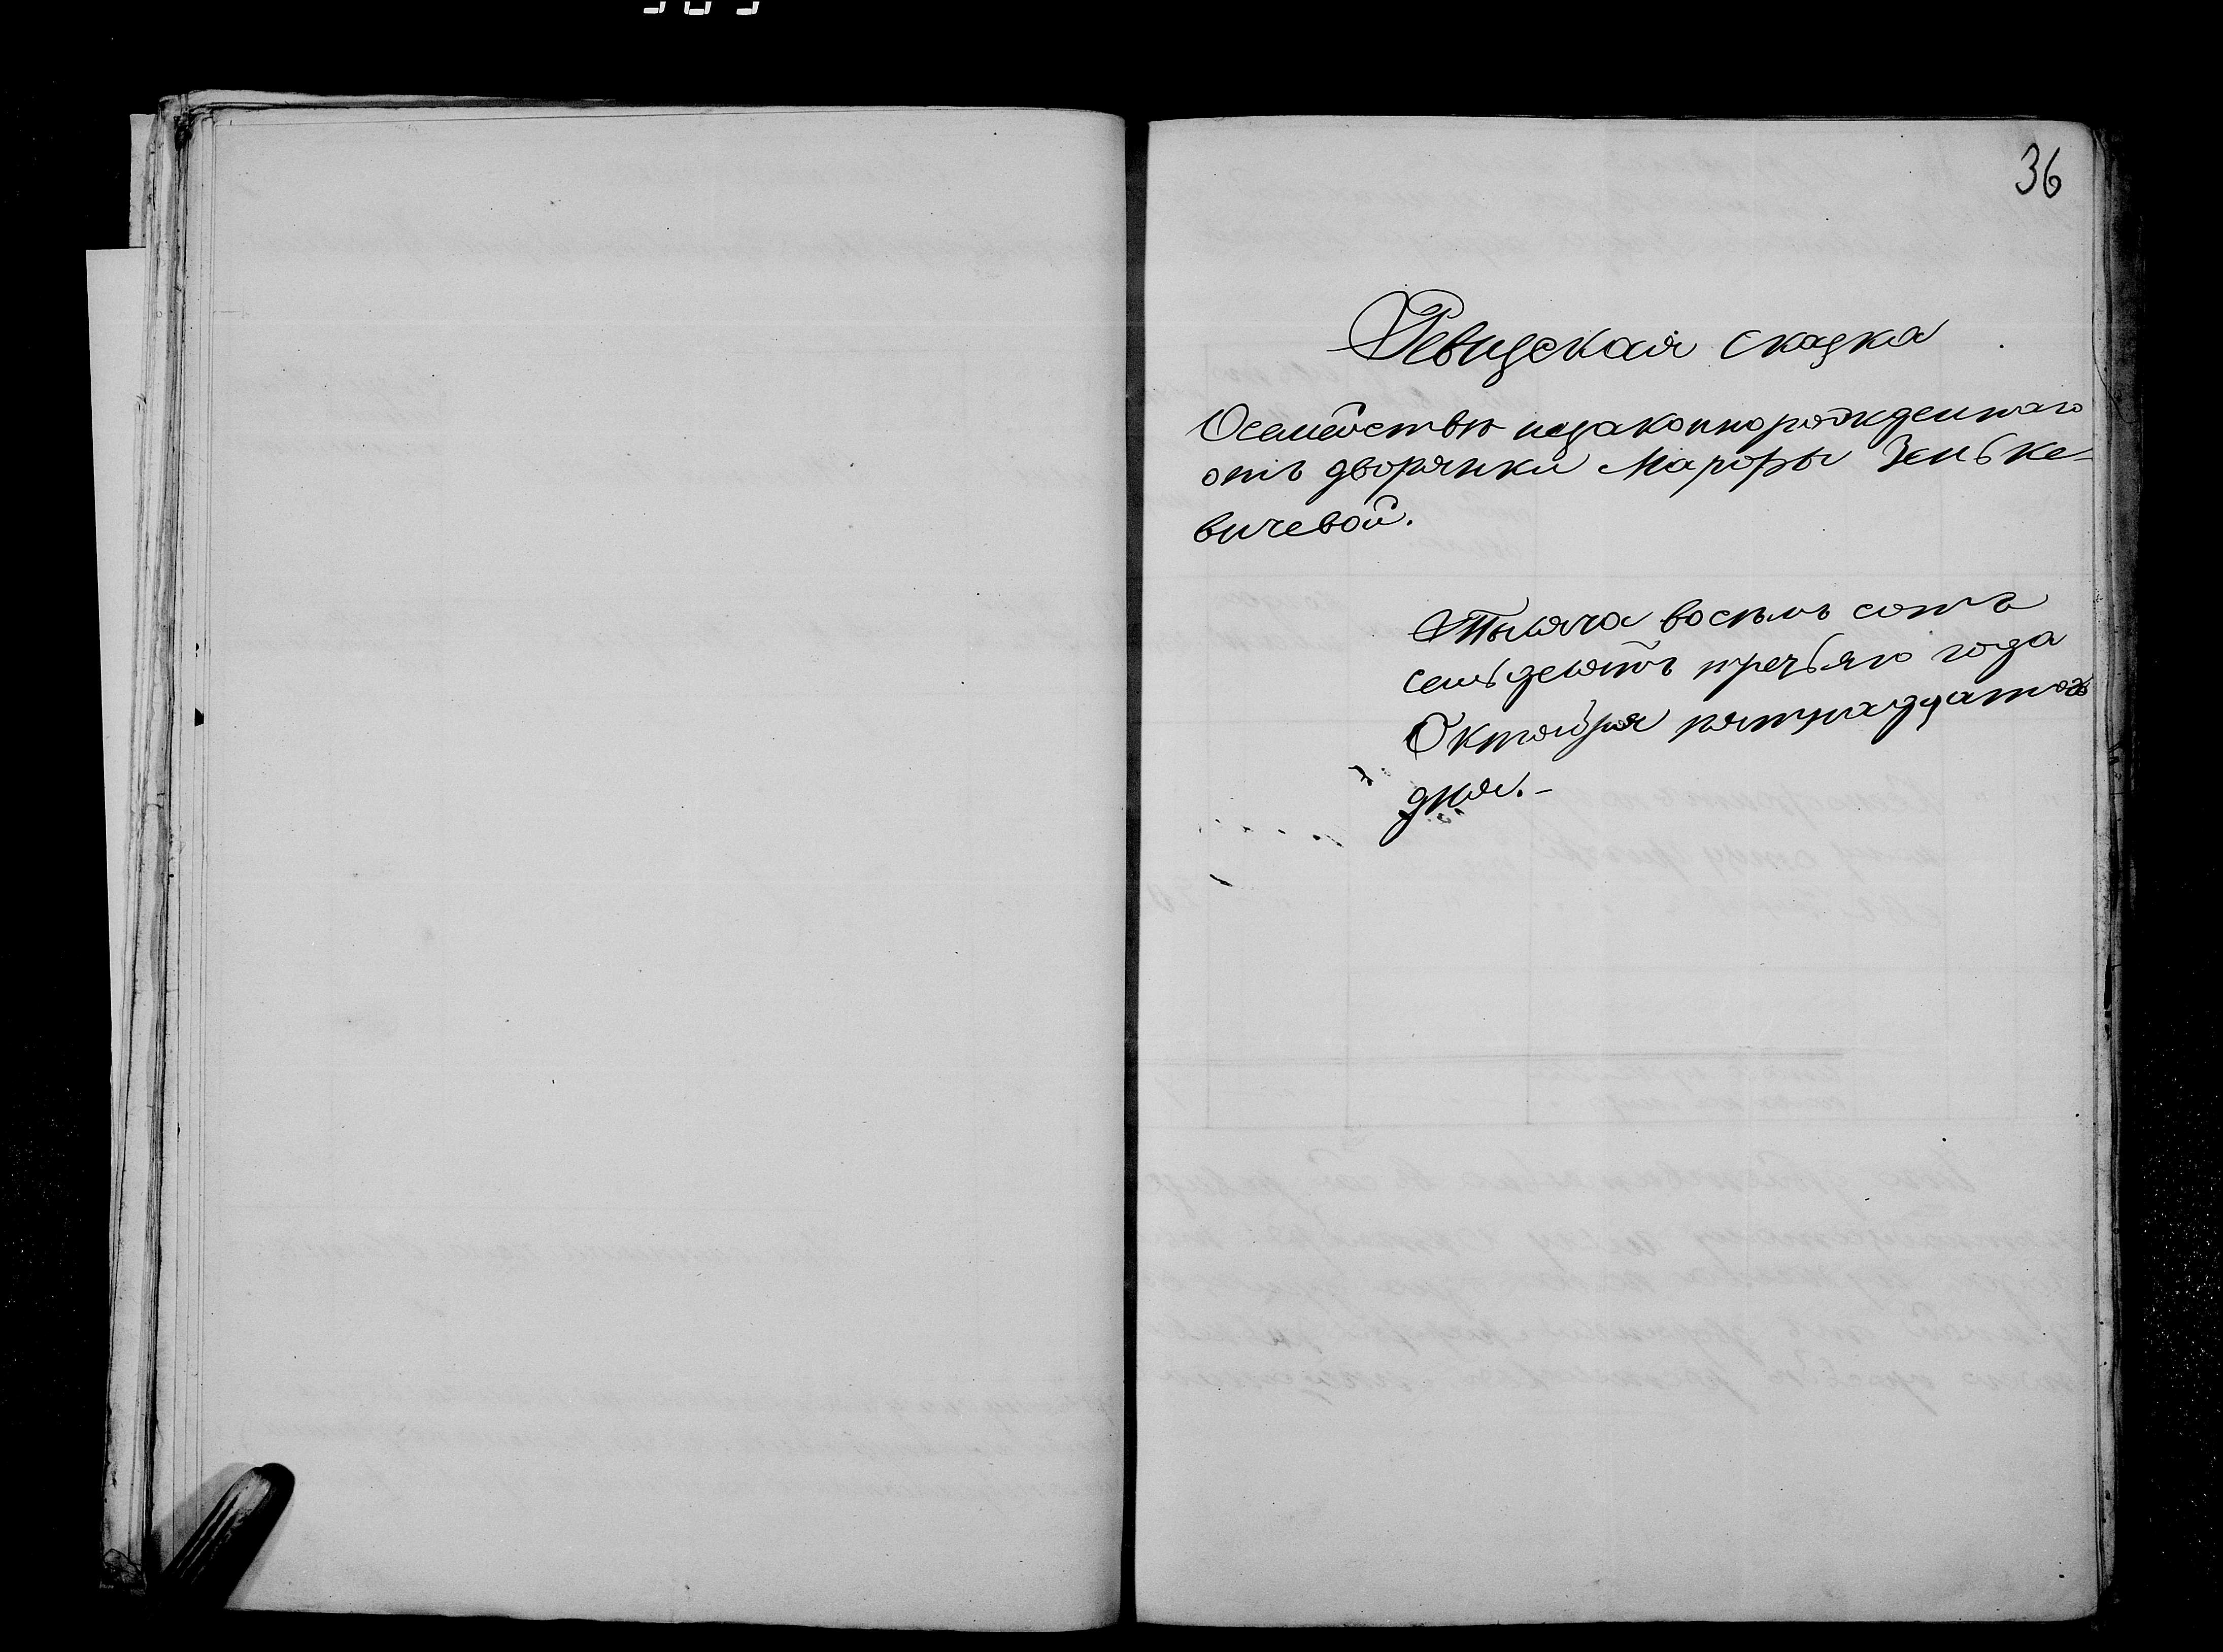 36
Ревизская сказка
О семействѣ незаконнорожденнаго
отъ дворянки Марфы Зеньке-
вичевой.
Тысяча восемь сотъ
семьдесятъ третьяго года
Октября пятнадцатого
дня. —